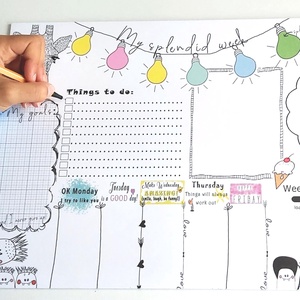 My splendid week
Things to do:
My goals:
OK Monday
I try to like you
Tuesday
is a GOOD day!
Make Wednesday
AMAZING!
(smile, laugh, be funny!)
Thursday
Things will always
work out
FRIDAY
Wee
love
love